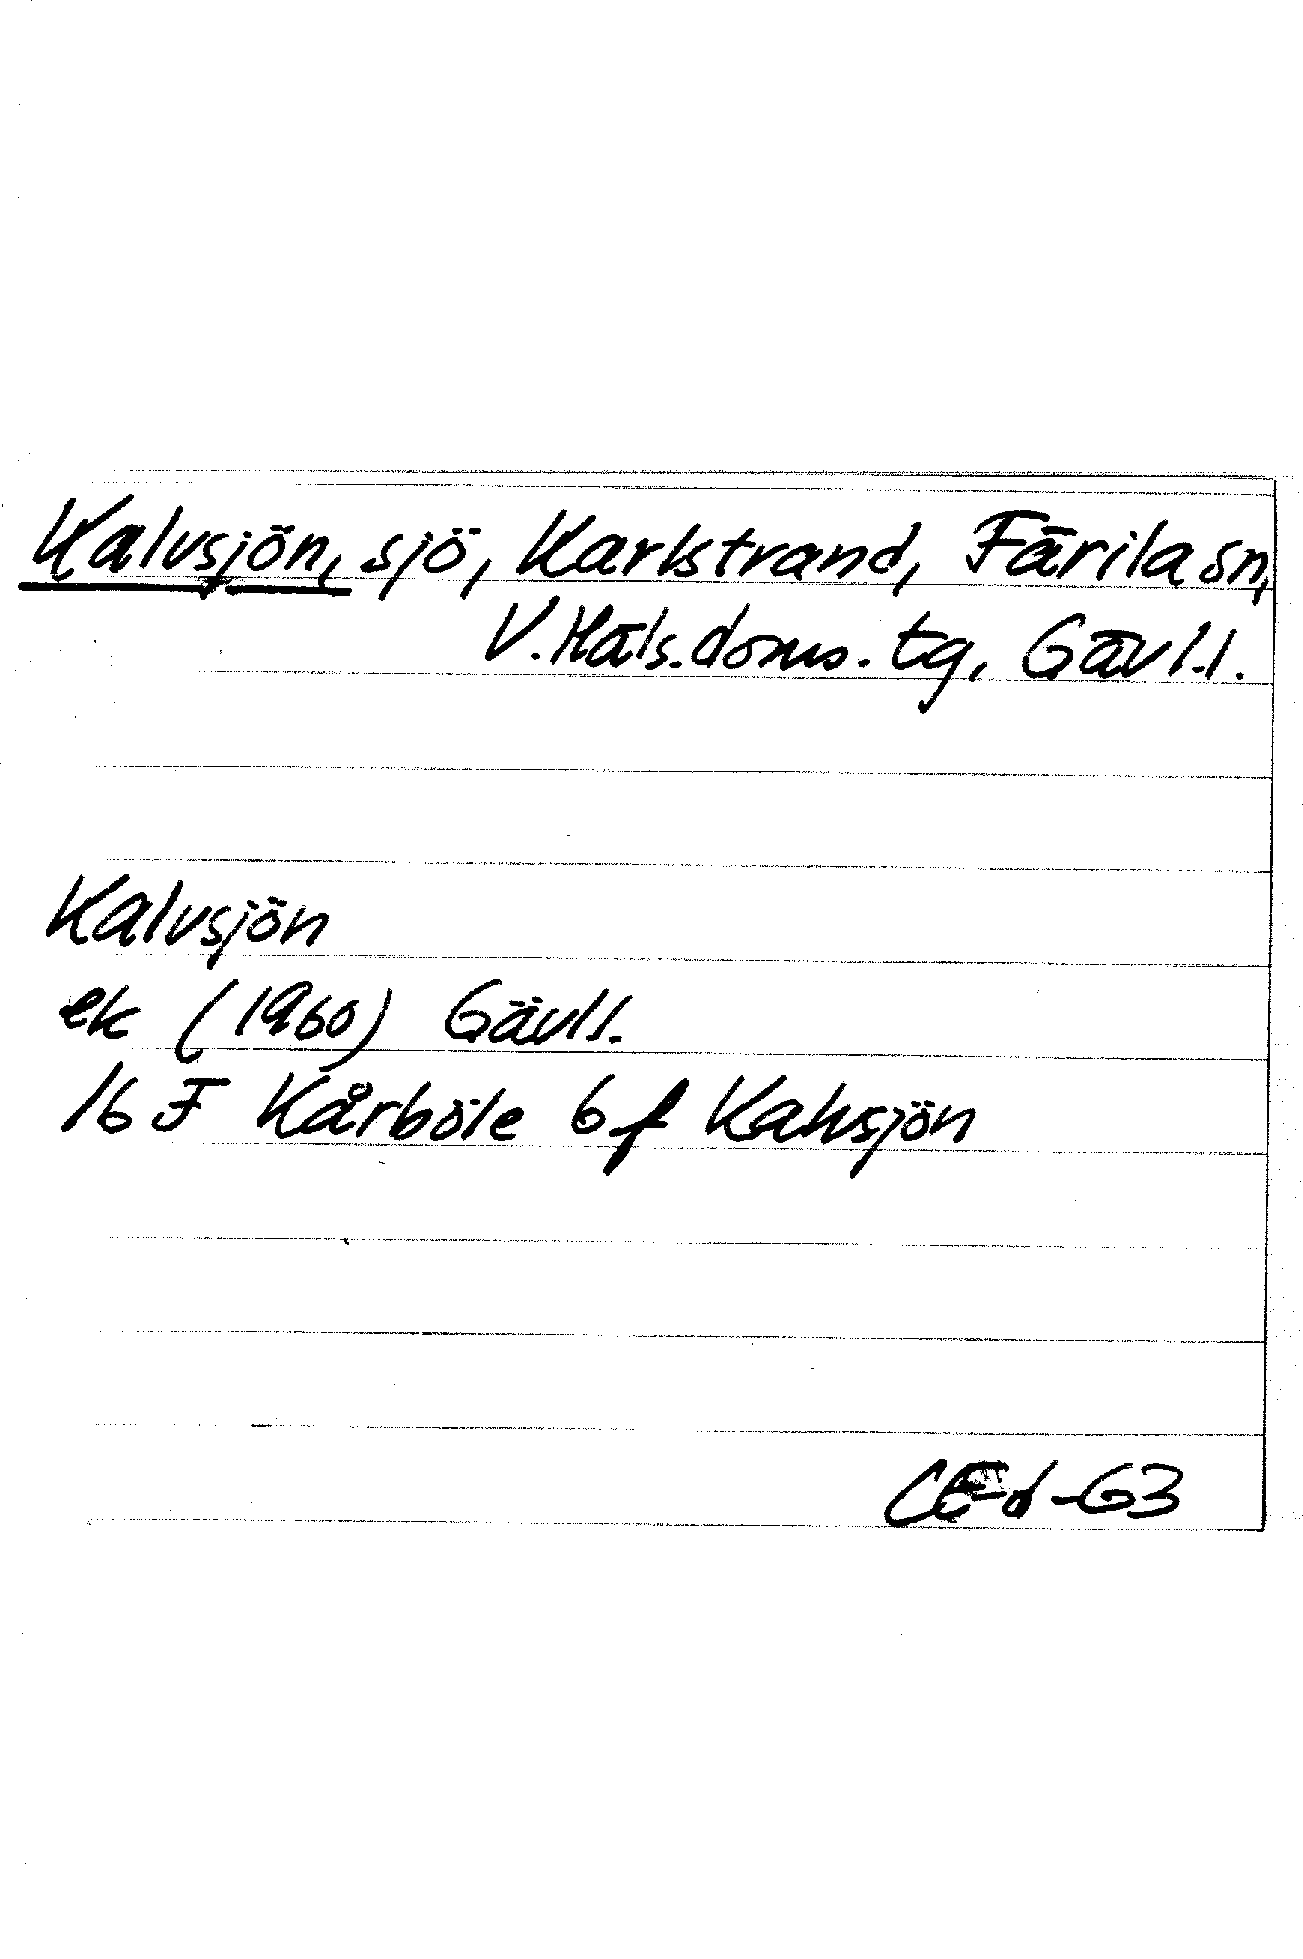 Kalvsjön, sjö, Karlstrand, Färila sn,
V. Häls. doms. tg, Gävl. l.
Kalvsjön
ek (1960) Gävl l.
16 F Kårböle 6 f Kalvsjön
CEd-63